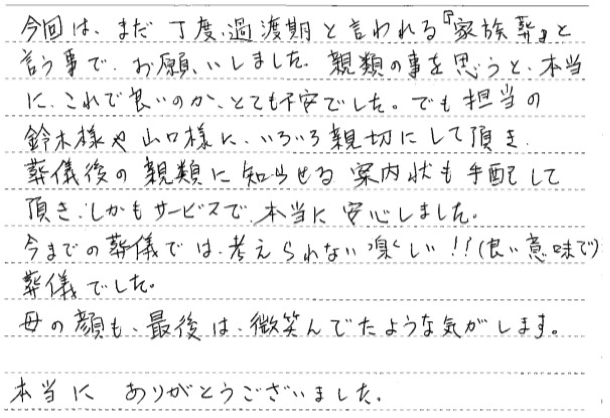 今回は、まだ丁度、過渡期と言われる『家族葬』と
言う事で、お願いしました。親類の事を思うと、本当
に、これで良いのか、とても不安でした。でも担当の
鈴木様や山口様に、いろいろ親切にして頂き、
葬儀後の親類に知らせる案内状も手配して
頂き、しかもサービスで、本当に安心しました。
今までの葬儀では、考えられない楽しい!!(良い意味で)
葬儀でした。
母の顔も、最後は、微笑んでたような気がします。
本当に ありがとうございました。